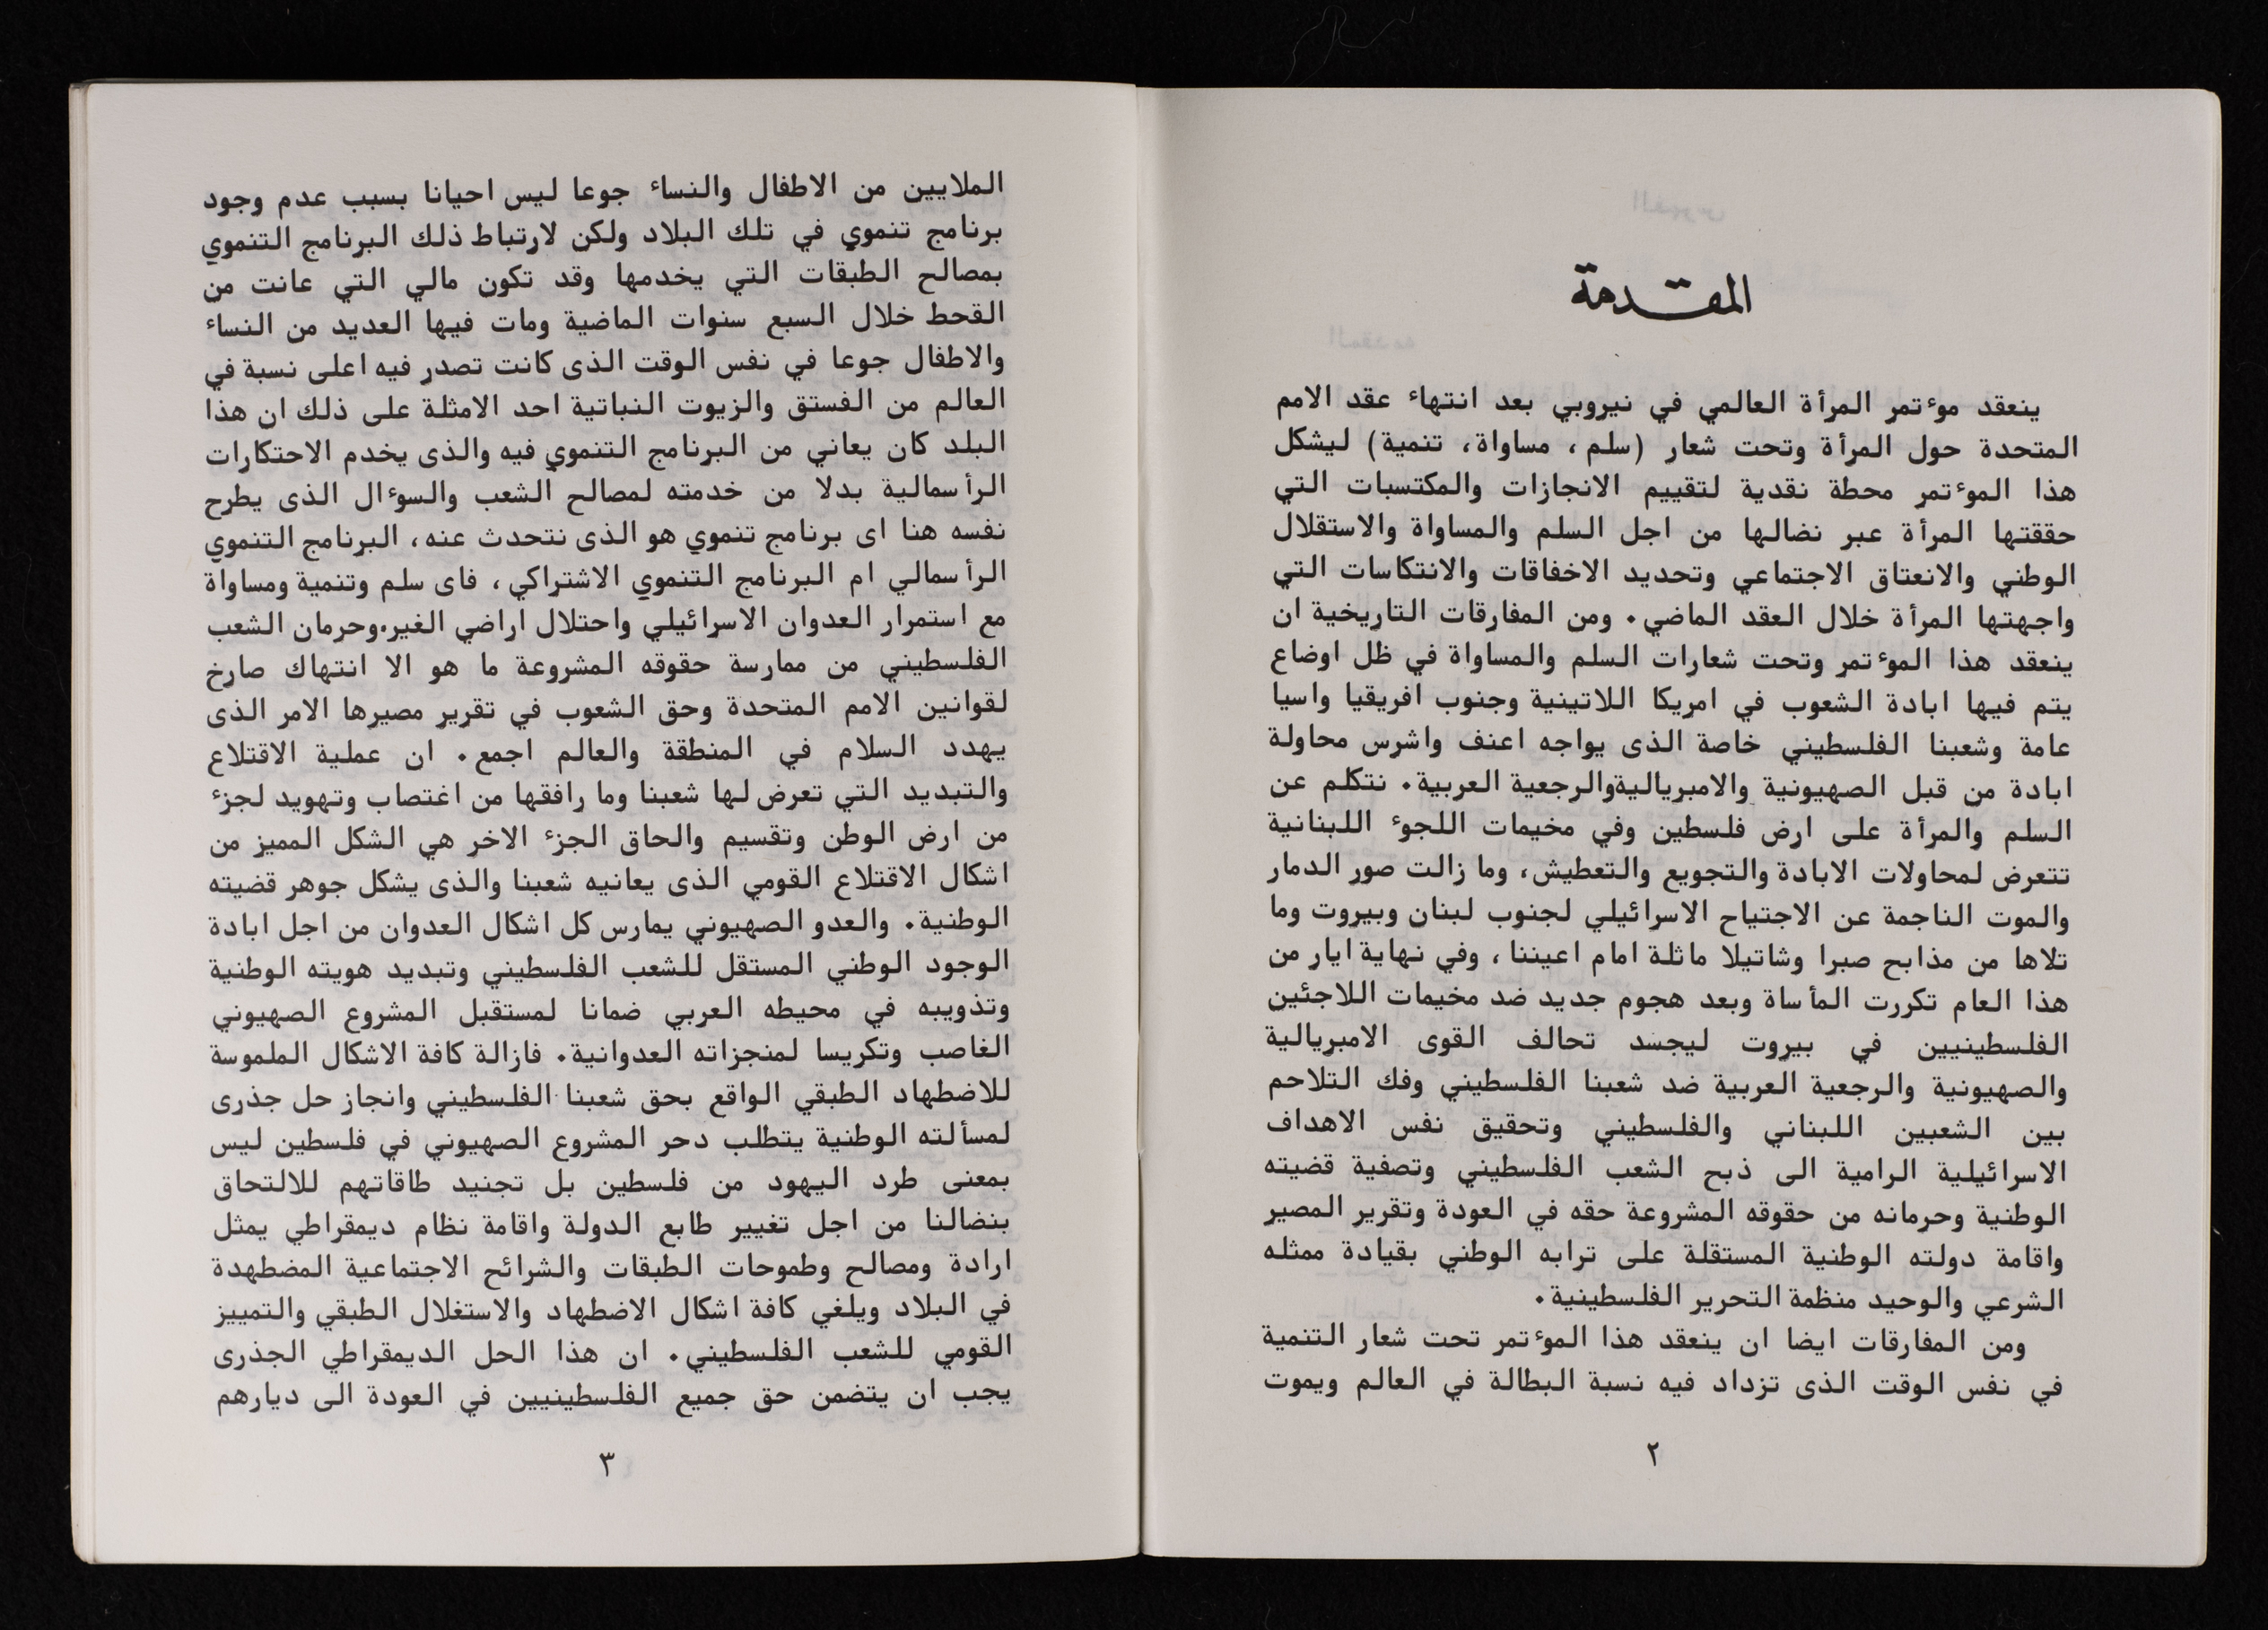 المقدمة
ينعقد موءتمر المرأة العالمي في نيروبي بعد انتهاء عقد الامم
المتحدة حول المرأة وتحت شعار (سلم، مساواة، تنمية) ليشكل
هذا الموءتمر محطة نقدية لتقييم الانجازات والمكتسبات التي
حققتها المرأة عبر نضالها من اجل السلم والمساواة والاستقلال
الوطني والانعتاق الاجتماعي وتحديد الاخفاقات والانتكاسات التي
واجهتها المرأة خلال العقد الماضي. ومن المفارقات التاريخية ان
ينعقد هذا الموءتمر وتحت شعارات السلم والمساواة في ظل اوضاع
يتم فيها ابادة الشعوب في امريكا اللاتينية وجنوب افريقيا واسيا
عامة وشعبنا الفلسطيني خاصة الذى يواجه اعنف واشرس محاولة
ابادة من قبل الصهيونية والامبرياليةوالرجعية العربية. نتكلم عن
السلم والمرأة على ارض فلسطين وفي مخيمات اللجوء اللبنانية
تتعرض لمحاولات الابادة والتجويع والتعطيش، وما زالت صور الدمار
والموت الناجمة عن الاجتياح الاسرائيلي لجنوب لبنان وبيروت وما
تلاها من مذابح صبرا وشاتيلا ماثلة امام اعيننا، وفي نهاية ايار من
هذا العام تكررت المأساة وبعد هجوم جديد ضد مخيمات اللاجئين
الفلسطينيين في بيروت ليجسد تحالف القوى الامبريالية
والصهيونية والرجعية العربية ضد شعبنا الفلسطيني وفك التلاحم
بين الشعبين اللبناني والفلسطيني وتحقيق نفس الاهداف
الاسرائيلية الرامية الى ذبح الشعب الفلسطيني وتصفية قضيته
الوطنية وحرمانه من حقوقه المشروعة حقه في العودة وتقرير المصير
واقامة دولته الوطنية المستقلة على ترابه الوطني بقيادة ممثله
الشرعي والوحيد منظمة التحرير الفلسطينية.
ومن المفارقات ايضا ان ينعقد هذا الموءتمر تحت شعار التنمية
في نفس الوقت الذى تزداد فيه نسبة البطالة في العالم ويموت
٢
الملايين من الاطفال والنساء جوعا ليس احيانا بسبب عدم وجود
برنامج تنموي في تلك البلاد ولكن لارتباط ذلك البرنامج التنموي
بمصالح الطبقات التي يخدمها وقد تكون مالي التي عانت من
القحط خلال السبع سنوات الماضية ومات فيها العديد من النساء
والاطفال جوعا في نفس الوقت الذى كانت تصدر فيه اعلى نسبة في
العالم من الفستق والزيوت النباتية احد الامثلة على ذلك ان هذا
البلد كان يعاني من البرنامج التنموي فيه والذى يخدم الاحتكارات
الرأسمالية بدلا من خدمته لمصالح الشعب والسوءال الذى يطرح
نفسه هنا اى برنامج تنموي هو الذى نتحدث عنه، البرنامج التنموي
الرأسمالي ام البرنامج التنموي الاشتراكي، فاى سلم وتنمية ومساواة
مع استمرار العدوان الاسرائيلي واحتلال اراضي الغير.وحرمان الشعب
الفلسطيني من ممارسة حقوقه المشروعة ما هو الا انتهاك صارخ
لقوانين الامم المتحدة وحق الشعوب في تقرير مصيرها الامر الذى
يهدد السلام في المنطقة والعالم اجمع. ان عملية الاقتلاع
والتبديد التي تعرض لها شعبنا وما رافقها من اغتصاب وتهويد لجزء
من ارض الوطن وتقسيم والحاق الجزء الاخر هي الشكل المميز من
اشكال الاقتلاع القومي الذى يعانيه شعبنا والذى يشكل جوهر قضيته
الوطنية. والعدو الصهيوني يمارس كل اشكال العدوان من اجل ابادة
الوجود الوطني المستقل للشعب الفلسطيني وتبديد هويته الوطنية
وتذويبه في محيطه العربي ضمانا لمستقبل المشروع الصهيوني
الغاصب وتكريسا لمنجزاته العدوانية. فازالة كافة الاشكال الملموسة
للاضطهاد الطبقي الواقع بحق شعبنا الفلسطيني وانجاز حل جذرى
لمسألته الوطنية يتطلب دحر المشروع الصهيوني في فلسطين ليس
بمعنى طرد اليهود من فلسطين بل تجنيد طاقاتهم للالتحاق
بنضالنا من اجل تغيير طابع الدولة واقامة نظام ديمقراطي يمثل
ارادة ومصالح وطموحات الطبقات والشرائح الاجتماعية المضطهدة
في البلاد ويلغي كافة اشكال الاضطهاد والاستغلال الطبقي والتمييز
القومي للشعب الفلسطيني. ان هذا الحل الديمقراطي الجذرى
يجب ان يتضمن حق جميع الفلسطينيين في العودة الى ديارهم
٣